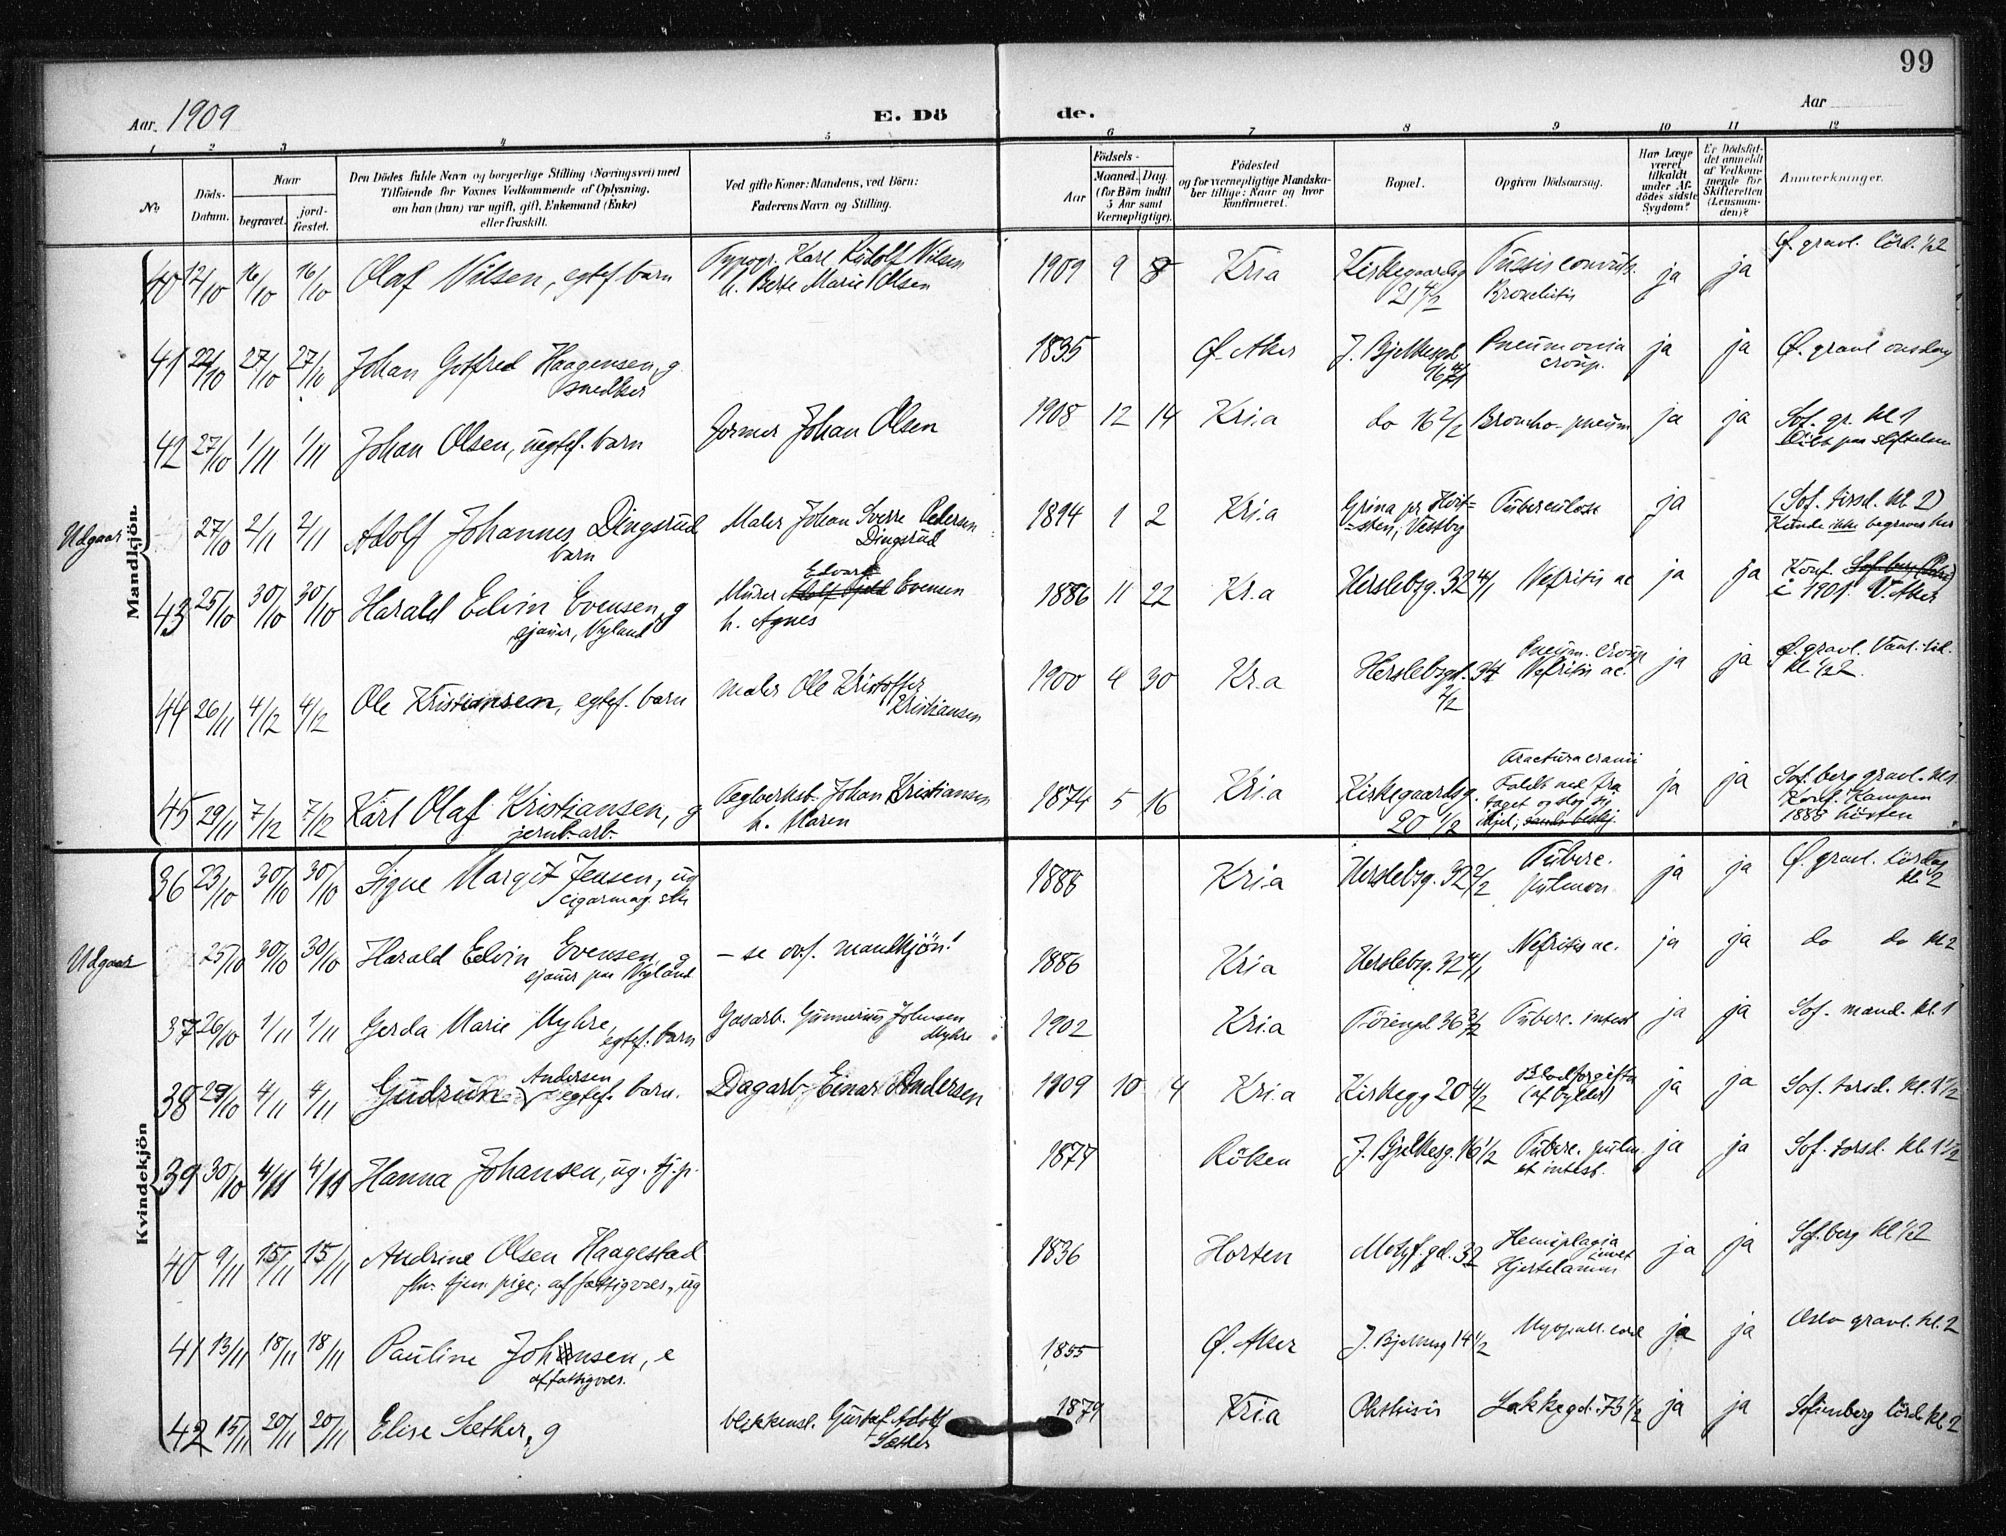 99
Aar 1909
E. Dö
de.
Aar
1 2 3 4 5 6 7 8 9 10 11 12
No
Döds-Datum.
Naar
begravet.
jord-fæstet.
Den Dödes fulde Navn og borgerlige Stilling (Næringsvei) med
Tilföiende for Voxnes Vedkommende af Oplysning,
om han (hun) var ugift, gift, Enkemand (Enke)
eller fraskilt.
Ved gifte Koner: Mandens, ved Börn:
Faderens Navn og Stilling.
Födsels-
Aar
Maaned. Dag
(for Börn indtil
5 Aar samt
Værnepligtige).
Födested
og for værnepligtige Mandska-
ber tillige: Naar og hvor
konfirmeret.
Bopæl.
Opgiven Dödsaarsag.
Har Læge
været
tilkaldt
under Af-
dödes sidste
Sygdom?
Er Dödsfal-
det anmeldt
af Vedkom-
mende for
Skifteretten
(Lensman-
den)?
Anmerkninger.
Mandkjön.
40 12/10 16/10 16/10 Olaf Nilsen, egtef. barn Typogr. Karl Rudolf Nilsen 1909 9 8 Kria Kirkegaardsg Tussis convuls. ja ja Ø. gravl. lörd. 1/2 2
h. Berte Marie Olsen 21 4/2 Bronchitis
41 22/10 27/10 27/10 Johan Gotfred Haagensen, g 1835 Ø. Aker J. Bjelkesgd Pneumonia ja ja Ø. gravl onsdag
snedker croup.
42 27/10 1/11 1/11 Johan Olsen, uegtef. barn former Johan Olsen 1908 12 14 Kria do 16 2/2 Broncho-pneum ja ja Sof. gr. kl 1
Udgaar 27/10 2/11 2/11 Adolf Johannes Dingsrud Maler Johan Sverre Petersen 1894 1 2 Kria Grina pr Hvit- Tuberculose ja (Sof. tirsd. kl 2)
barn Dingsrud -sten, Vestby Kunde ikke begraves her
43 25/10 30/10 30/10 Harald Edvin Evensen, g Murer Edvard Evensen 1886 11 22 Kr.a Herslebsg. 32 4/1 Nefritis ac ja ja Konf.
sjauer, Nyland h. Agnes i 1901 V. Aker
44 26/11 4/12 4/12 Ole Kristiansen, egtef. barn maler Ole Kristoffer 1900 4 30 Kr.a Herslebsgd. 34 Pneum. croup ja ja Ø. gravl.
Kristiansen 2/2 Nefritis ac. kl. 1/2 2.
45 29/11 7/12 7/12 Karl Olaf Kristiansen, g Teglverksb. Johan Kristiansen 1874 5 16 Kria Kirkegaardsg. Fractura cranii ja ja Sof. berg gravl. kl 1
jernb-arb. h. Maren 20 1/2 Faldt ned fra taget og slog sig ihjel; Konf. Kampen
1888 hösten
Kvindekjön
36 23/10 30/10 30/10 Signe Margit Jensen, ug 1888 Kria Herslebsg. 32 2/2 Tuberc. ja ja Ø. gravl. lördag
cigarmag. ske pulmon. kl 2
Udgaar 25/10 30/10 30/10 Harald Edvin Evensen, g - se ovf. mandkjön! 1886 Kria Herslebsg. 32 4/1 Nefritis ac. ja ja do do kl 2
sjauer paa Nyland
37 26/10 1/11 1/11 Gerda Marie Myhre, Gasarb. Gunnerius Johnsen 1902 Kria Töiengd. 36 3/2 Tuberc. intest ja ja Sof. mand. kl. 1
egtef. barn Myhre
38 29/10 4/11 4/11 Gudrun Andersen egtef. barn. Dagarb. Einar Andersen 1909 10 4 Kria Kirkegg 20 4/2 Blodforgiftn ja ja Sof. torsd. kl. 1 1/2
(af bylder)
39 30/10 4/11 4/11 Hanna Johansen, ug. tj.p. 1877 Röken J. Bjelkesg. 16 1/2 Tuberc. pulm. ja ja Sof. torsd. kl. 1 1/2
et intest.
40 9/11 15/11 15/11 Andrine Olsen Haagestad 1836 Horten Motzf. gd. 32 Hemiplegia ja ja Sof. berg kl 1/2 2
fhv. tjen. pige; af fattigvæs., ug
41 13/11 18/11 18/11 Pauline Johansen, e 1855 Ø. Aker J. Bjelkesg 14 1/2 Myopatt. cord ja ja Oslo gravl. kl. 2
af fattigvæs.
42 15/11 20/11 20/11 Elise Sæther, g blikkensl. Gustaf Adolf 1879 Kria Ohthisis Lakkegd. 75 1/2 ja ja Sofienberg lörd. kl 2
Sæther